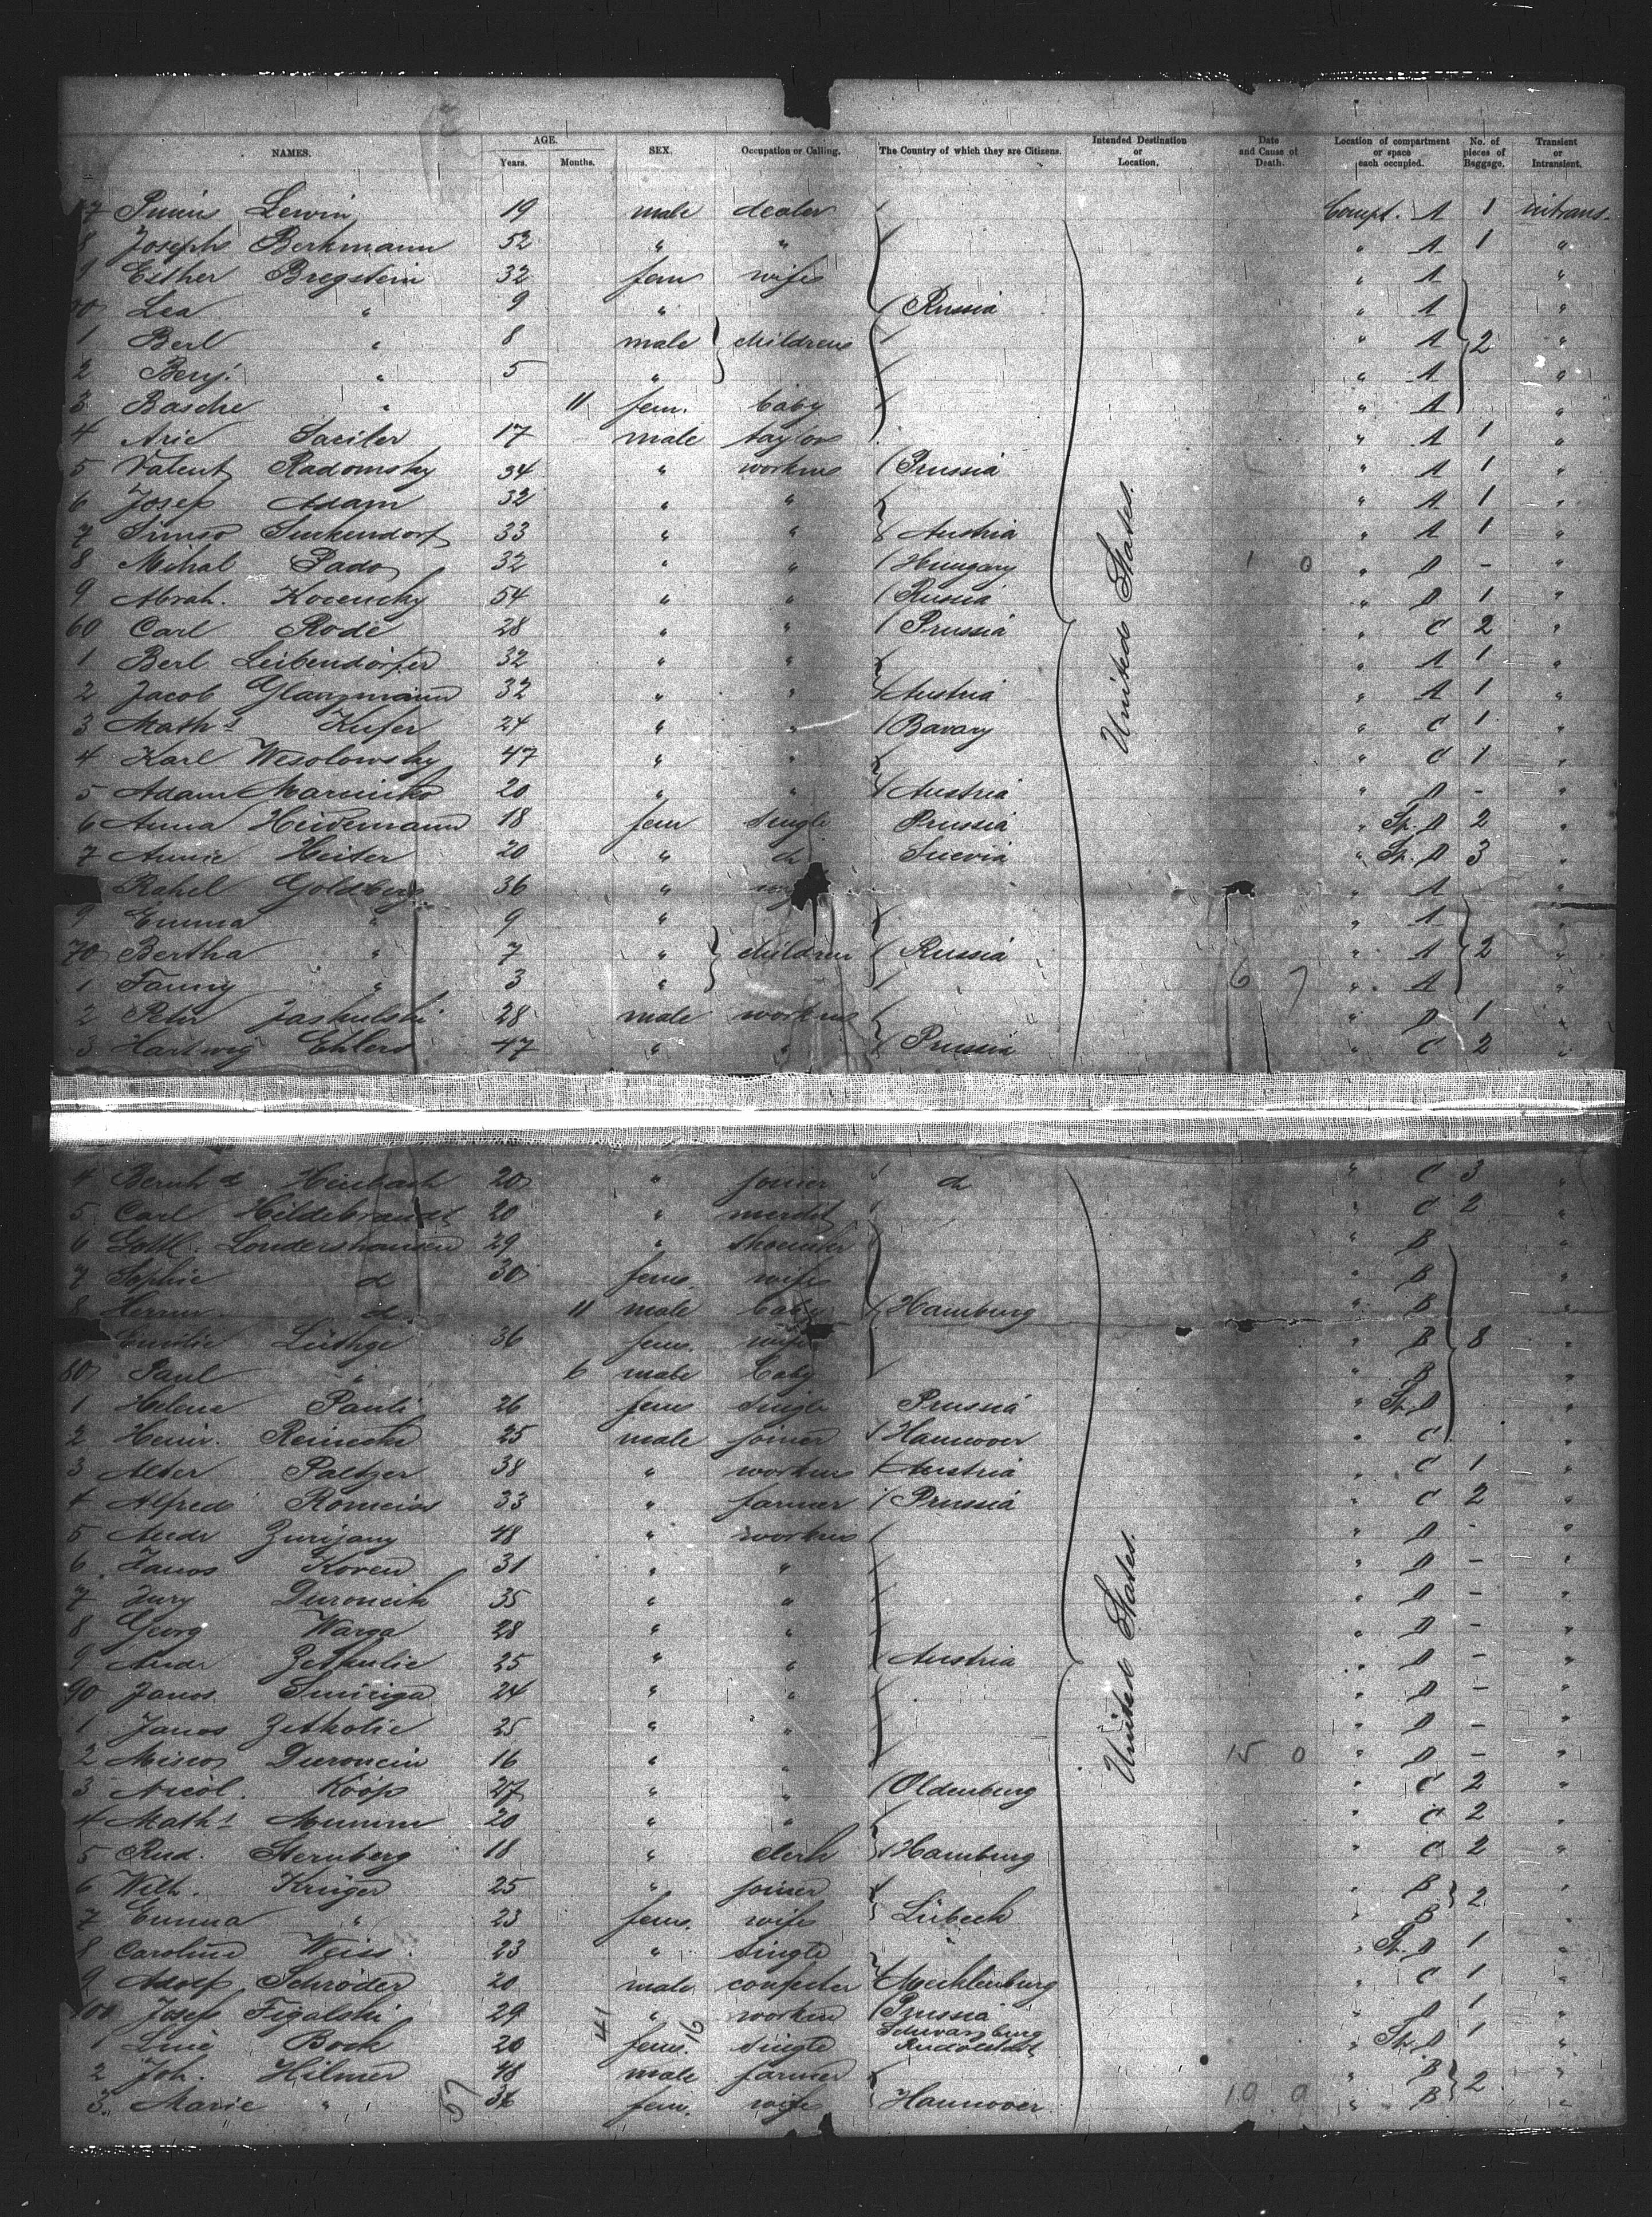 NAMES. AGE. Years. Months. SEX. Occupation or Calling. The Country of which they are Citizens. Intended Destination or Location. Date and Cause of Death. Location of compartment or space each occupied. No. of pieces of Baggage. Transient or Intransient.
47 Lewin 19 male dealer Compt. A 1 intrans.
8 Joseph Berkmann 52 " " " A 1 "
9 Esther Bregstein 32 fem wife " A "
50 Lea " 9 " Russia " A "
1 Berl " 8 male childrens " A 2 "
2 Benj. " 5 " " A "
3 Basche " 11 fem. baby " A "
4 Arie 17 male taylor " A 1 "
5 Valent Radomsky 34 " workm Prussia " A 1 "
6 Josef Adam 32 " " " A 1 "
7 33 " " Austria " A 1 "
8 Mihal Pado 32 " " Hungary 1 0 " D - "
9 Abrah. 54 " " Russia " D 1 "
60 Carl Rode 28 " " Prussia " C 2 "
1 Berl Leibendörfer 32 " " " A 1 "
2 Jacob Glanzmann 32 " " Austria " A 1 "
3 Maths Kufer 24 " " Bavary " C 1 "
4 Karl Wesolowsky 47 " " " C 1 "
5 Adam 20 " " Austria " D - "
6 Anna Heidemann 18 fem single Prussia " Sp. D 2 "
7 Annie Heiter 20 " do Suevia " Sp. D 3 "
Rahel Goldberg 36 " " A "
9 Emma " 9 " " A "
70 Bertha " 7 " children Russia " A 2 "
1 Fanny " 3 " 6 7 " A "
2 Peter Jashulski 28 male workm " D 1 "
3 Hartwig Ehlers 47 " " Prussia " C 2 "
United States.
4 Bernhd Heinbach 20 " joiner do " C 3 "
5 Carl Hildebrandt 20 " merch " C 2 "
6 Gottl. Londershausen 29 " " B "
7 Sophie do 30 fem. wife " B "
8 Herm. do 11 male baby Hamburg " B "
Emilie Lüthge 36 fem. wife " B 8 "
80 Paul " 6 male baby " B "
1 Helene Pauli 26 fem single Prussia " Sp. D "
2 Heinr. Reinecke 25 male joiner Hannover " C "
3 Alter Paltzer 38 " workm Austria " C 1 "
4 Alfred 33 " farmer Prussia " C 2 "
5 Andr 48 " workm " D - "
6 Janos Koren 31 " " " D - "
7 Jury Duroncik 35 " " " D - "
8 Georg Warga 28 " " " D - "
9 Andr 25 " " Austria " D - "
90 Janos 24 " " " D - "
1 Janos 25 " " " D - "
2 16 " " 15 0 " D - "
3 Nicol. Koop 27 " " Oldenburg " C 2 "
4 Maths Mumm 20 " " " C 2 "
5 Rud. Sternberg 18 " clerk Hamburg " C 2 "
6 Wilh. Krüger 25 " joiner " B 2 "
7 Emma " 23 fem. wife Lübeck " B "
8 Caroline Weiss 23 " single " Sp. D 1 "
9 Adolf Schröder 20 male Mecklenburg " C 1 "
100 Josef Figalski 29 " workm Prussia " D 1 "
1 Line Bock 20 fem. single Schwarzburg Rudolstadt " Sp. D 1 "
2 Joh. Hilmer 48 male farmer " B 2 "
3 Marie " 36 fem. wife Hannover 19 9 " B "
United States.
41 16
57